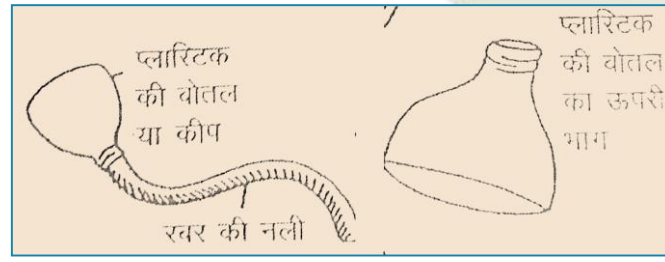 प्लास्टिक
की बोतल
या कीप
रबर की नली
प्लास्टिक
की बोतल
का ऊपरी
भाग